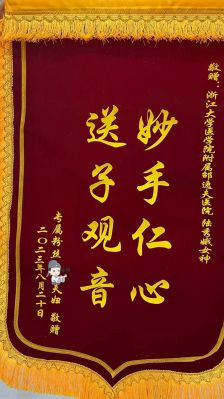 敬赠：浙江大学医学院附属邵逸夫医院 陆秀娥女神
妙手仁心
送子观音
专属粉丝 夫妇 敬赠
二〇二三年八月二十日